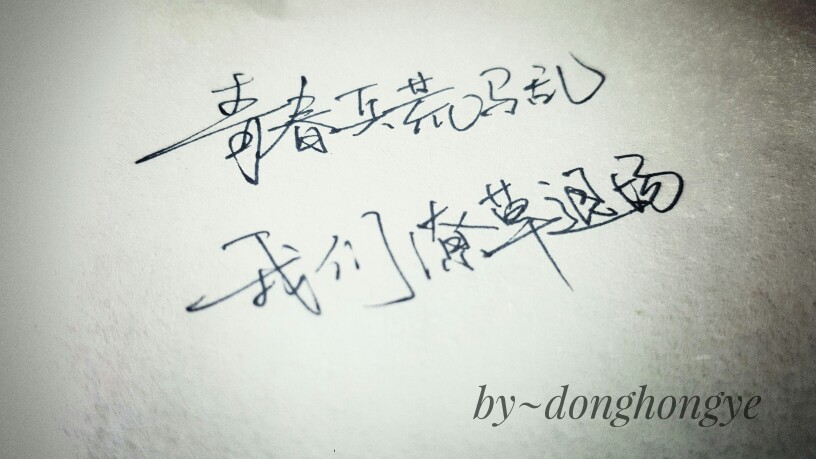 青春兵荒马乱
我们潦草退场
by~donghongye